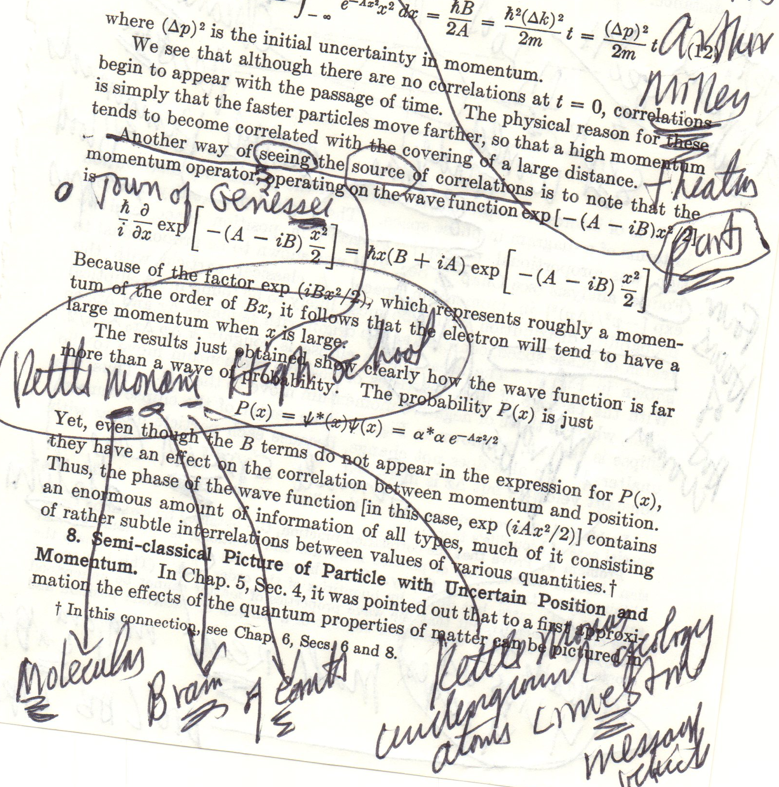 ∫_{-∞} e^{-Ax²}x² dx = ħB/2A = ħ²(Δk)²/2m t = (Δp)²/2m t (12)
where (Δp)² is the initial uncertainty in momentum.
Arthur
Miller
We see that although there are no correlations at t = 0, correlations
begin to appear with the passage of time. The physical reason for these
is simply that the faster particles move farther, so that a high momentum
tends to become correlated with the covering of a large distance.
Another way of seeing the source of correlations is to note that the
momentum operator operating on the wave function exp [−(A − iB)x²/2]
is
Town of Genessee
parts
ħ/i ∂/∂x exp [−(A − iB) x²/2] = ħx(B + iA) exp [−(A − iB) x²/2]
Because of the factor exp (iBx²/2), which represents roughly a momen-
tum of the order of Bx, it follows that the electron will tend to have a
large momentum when x is large.
The results just obtained show clearly how the wave function is far
more than a wave of probability. The probability P(x) is just
High School
P(x) = ψ*(x)ψ(x) = α*α e^{−Ax²/2}
Yet, even though the B terms do not appear in the expression for P(x),
they have an effect on the correlation between momentum and position.
Thus, the phase of the wave function [in this case, exp (iAx²/2)] contains
an enormous amount of information of all types, much of it consisting
of rather subtle interrelations between values of various quantities.†
8. Semi-classical Picture of Particle with Uncertain Position and
Momentum. In Chap. 5, Sec. 4, it was pointed out that to a first approxi-
mation the effects of the quantum properties of matter can be pictured in
† In this connection, see Chap. 6, Secs. 6 and 8.
Moleculas
Brain
of
Kettle
underground
atoms
message